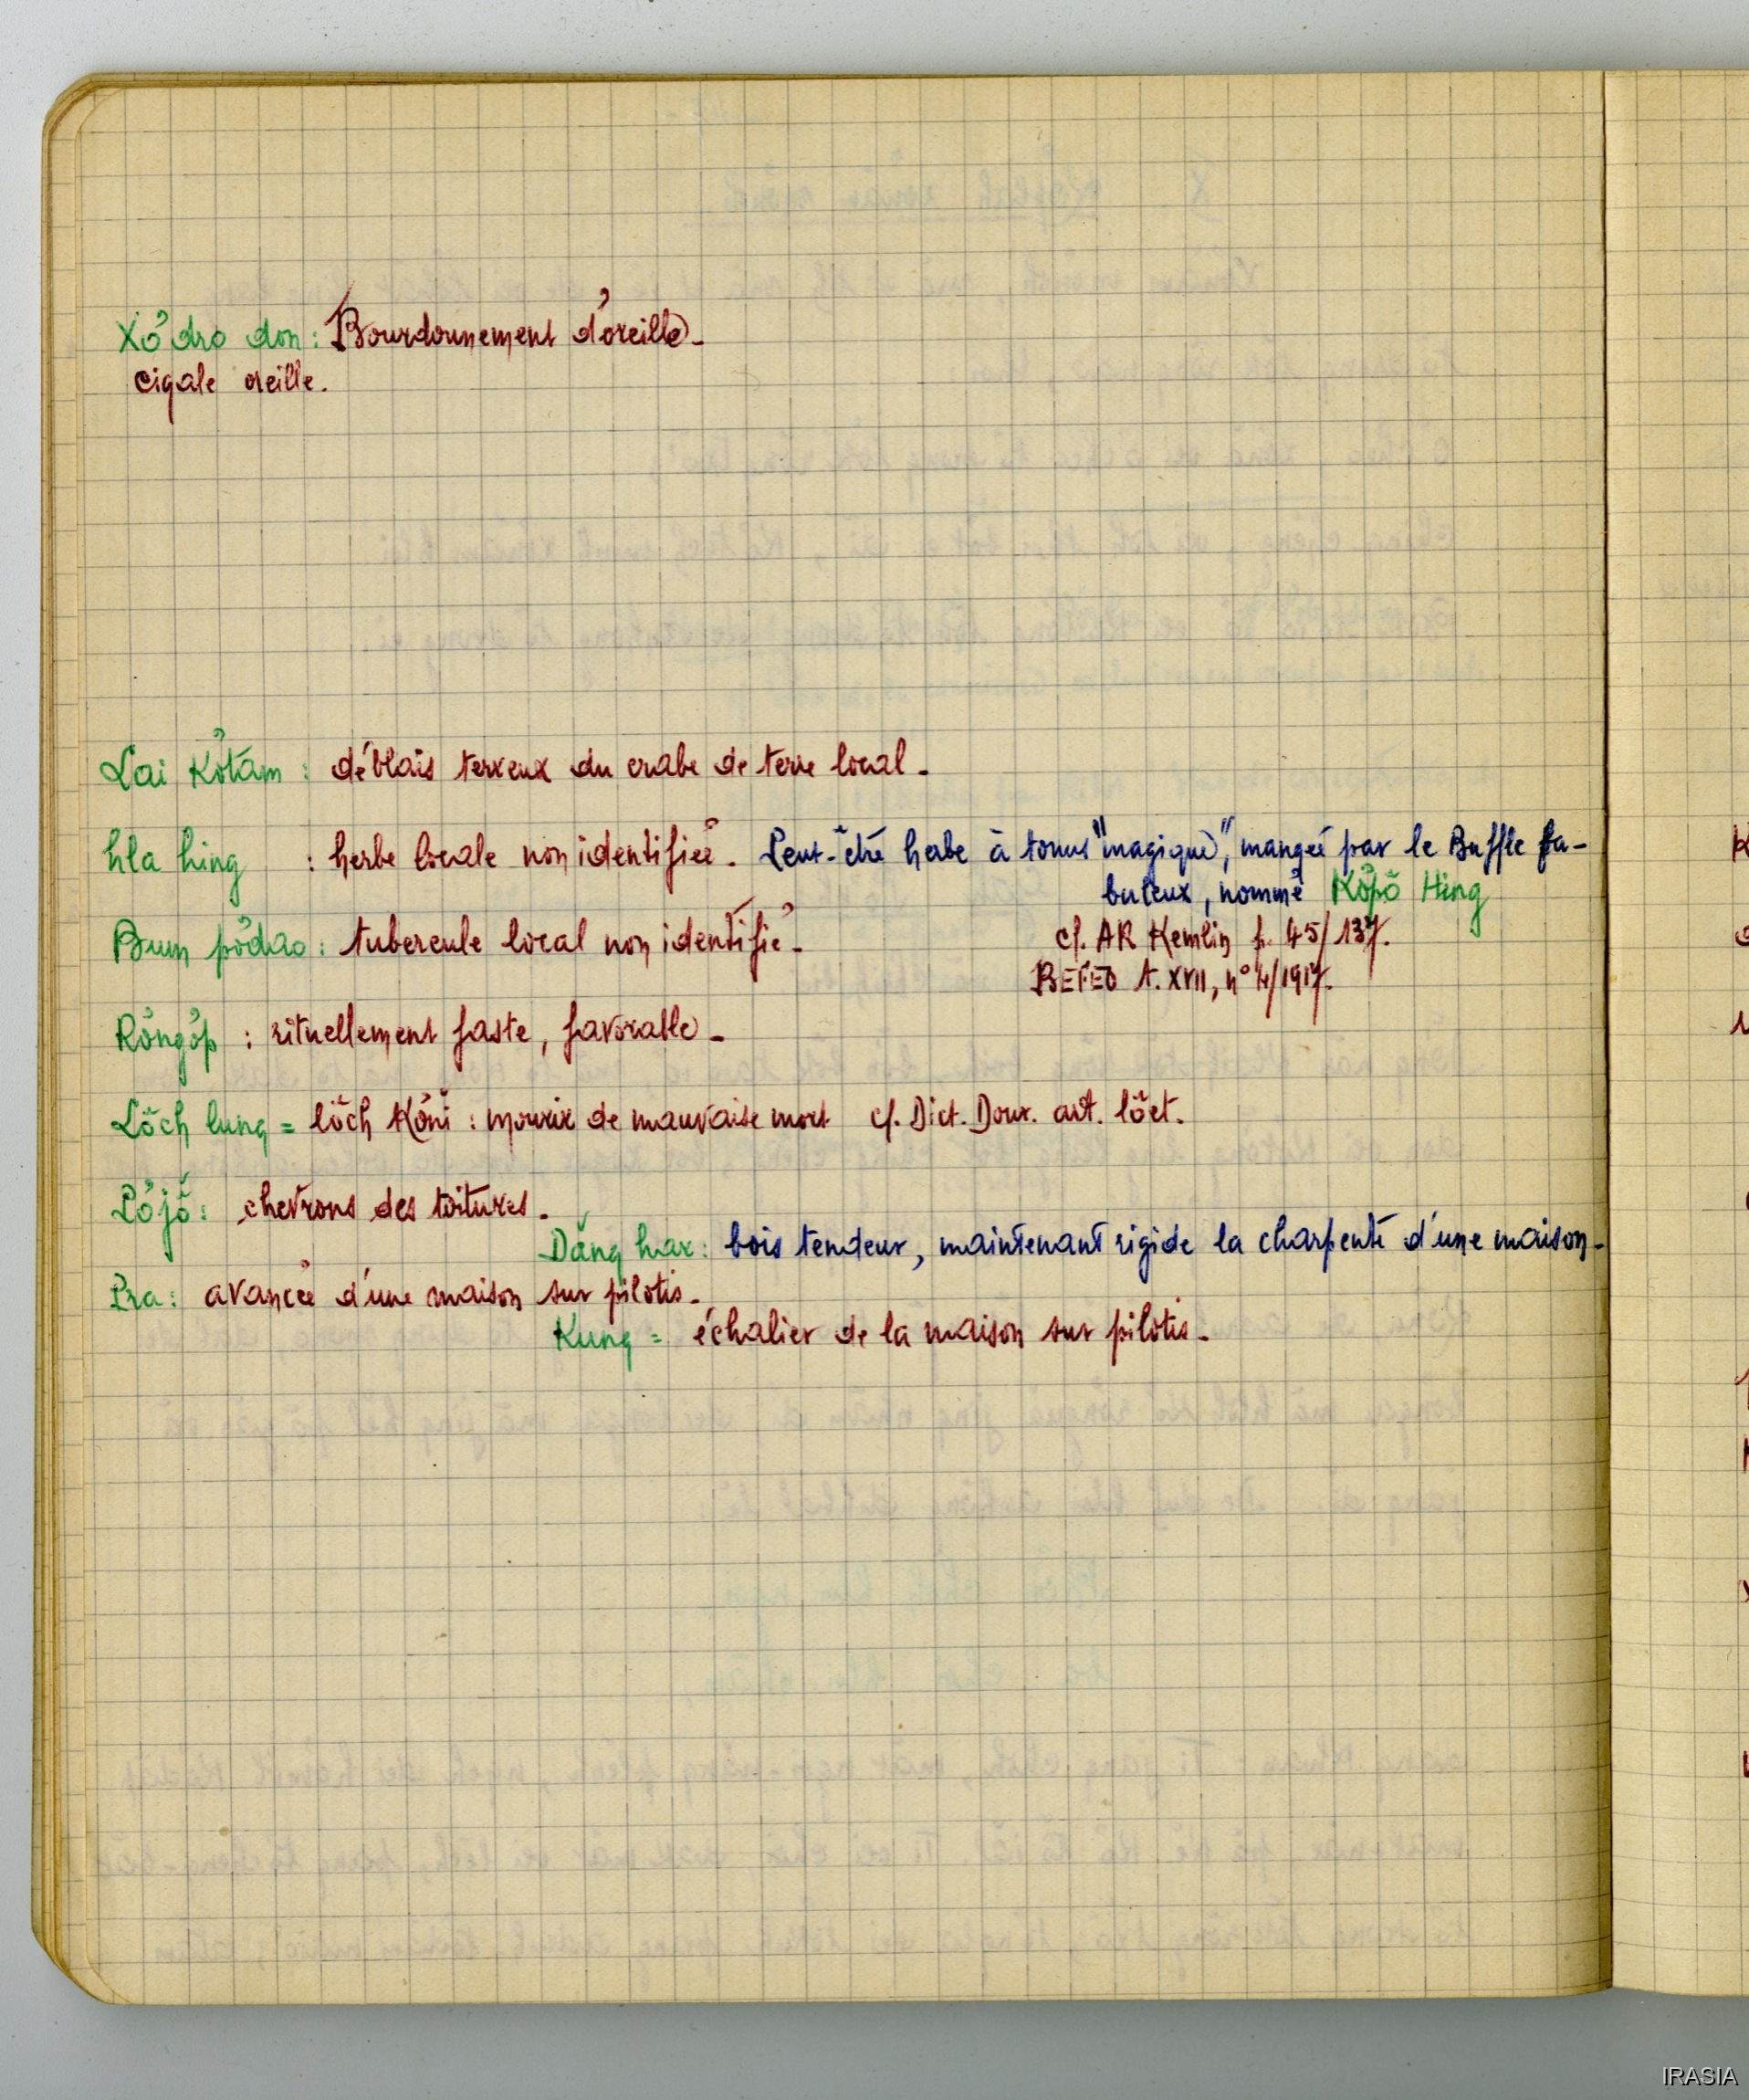 Xơdro don : Bourdonnement d'oreille.
cigale oreille.
Lai Kơtam : déblais terreux du crabe de terre local.
hla hing : herbe locale non identifiée. Peut-être herbe à tonus "magique", mangée par le Buffle fa-
buleux, nommé Kơpô Hing
Bum pơdao : tubercule local non identifié.
cf. AR Kemlin p. 45/137.
BEFEO t. XVII, n° 4/1917.
Rơngơp : rituellement faste, favorable.
Lôch lung = lôch Kơni : mourir de mauvaise mort cf. Dict. Dour. art. lôet.
Pơjơ : chevrons des toitures.
Dăng har : bois tendeur, maintenant rigide la charpente d'une maison.
Pra : avancée d'une maison sur pilotis.
Kung = échalier de la maison sur pilotis.
IRASIA